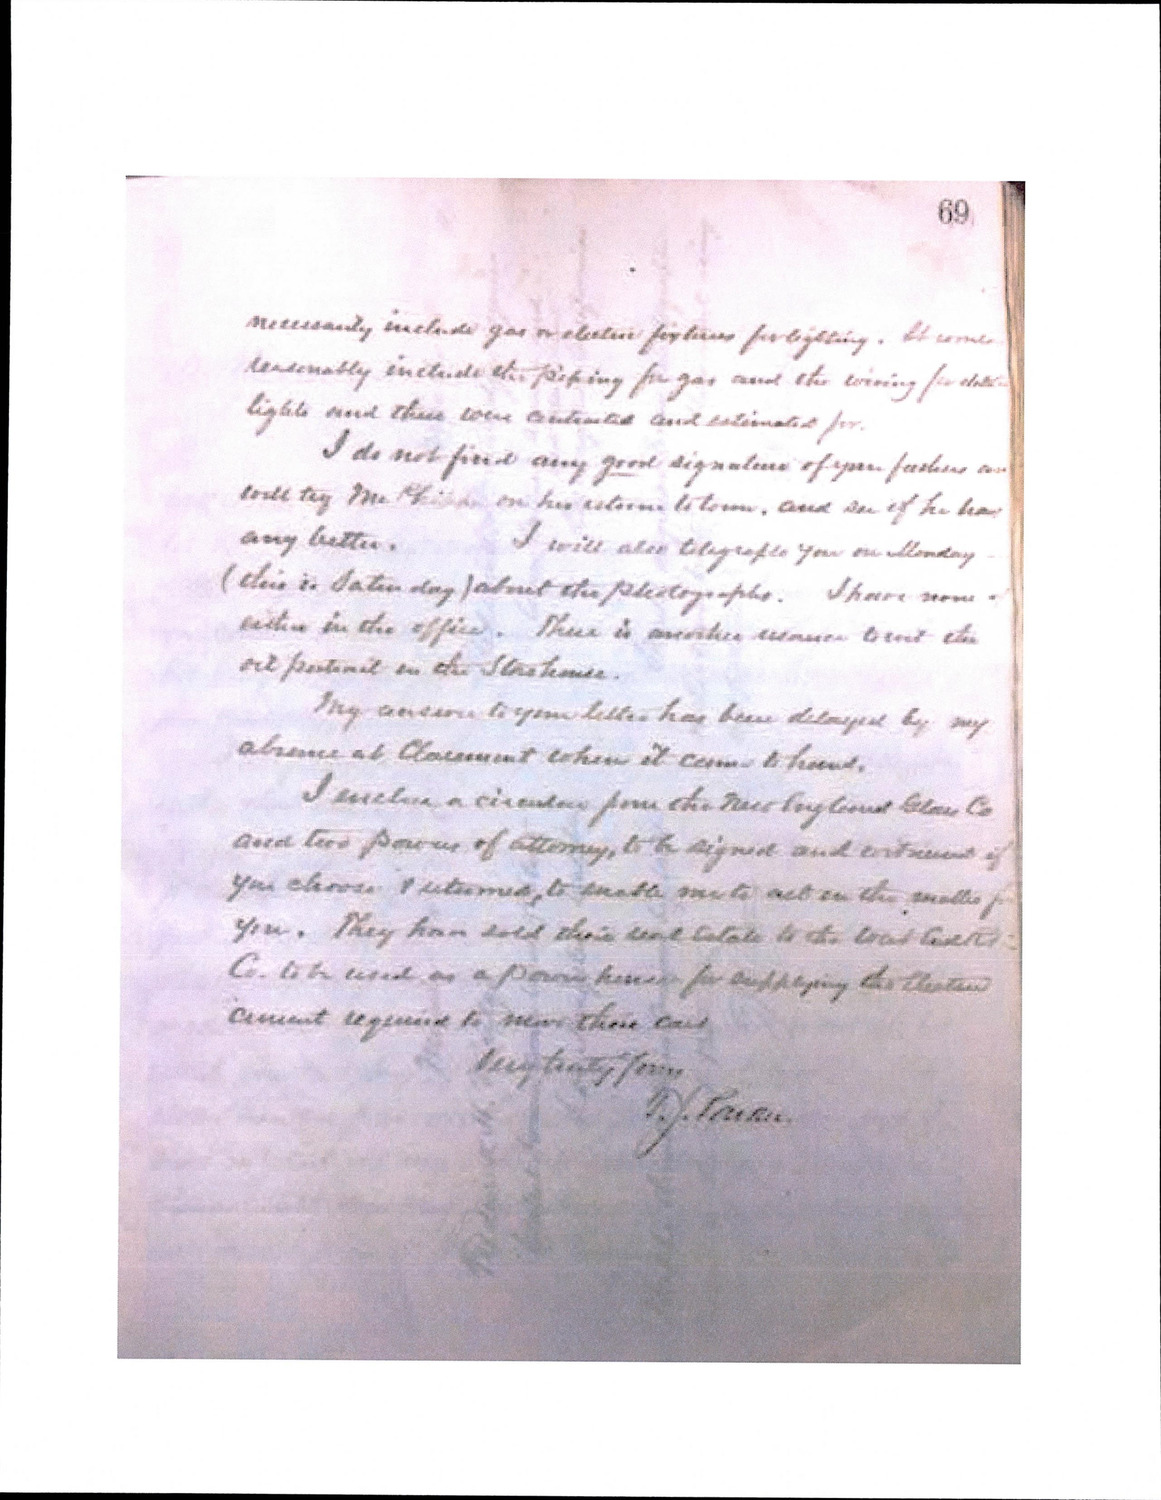 69
necessarily include gas or electric fixtures for lighting. It
reasonably include the piping for gas and the wiring for
lights and these were contracted and estimated for.
I do not find any good signature of your fathers
will try Mr. on his return to town, and see if he has
any better. I will also telegraph you on Monday
(this is Saturday) about the photographs. I have none
either in the office. There is another to the
oil portrait in the Storehouse.
My answer to your letter has been delayed by my
absence at Claremont when it came to hand.
I enclose a circular from the New England Glass Co
and two powers of attorney, to be signed and witnessed if
you choose & returned, to enable me to act in the matter
you. They have sold their real estate to the West
Co. to be used as a power house for supplying the Electric
current required to move their cars
Very truly yours